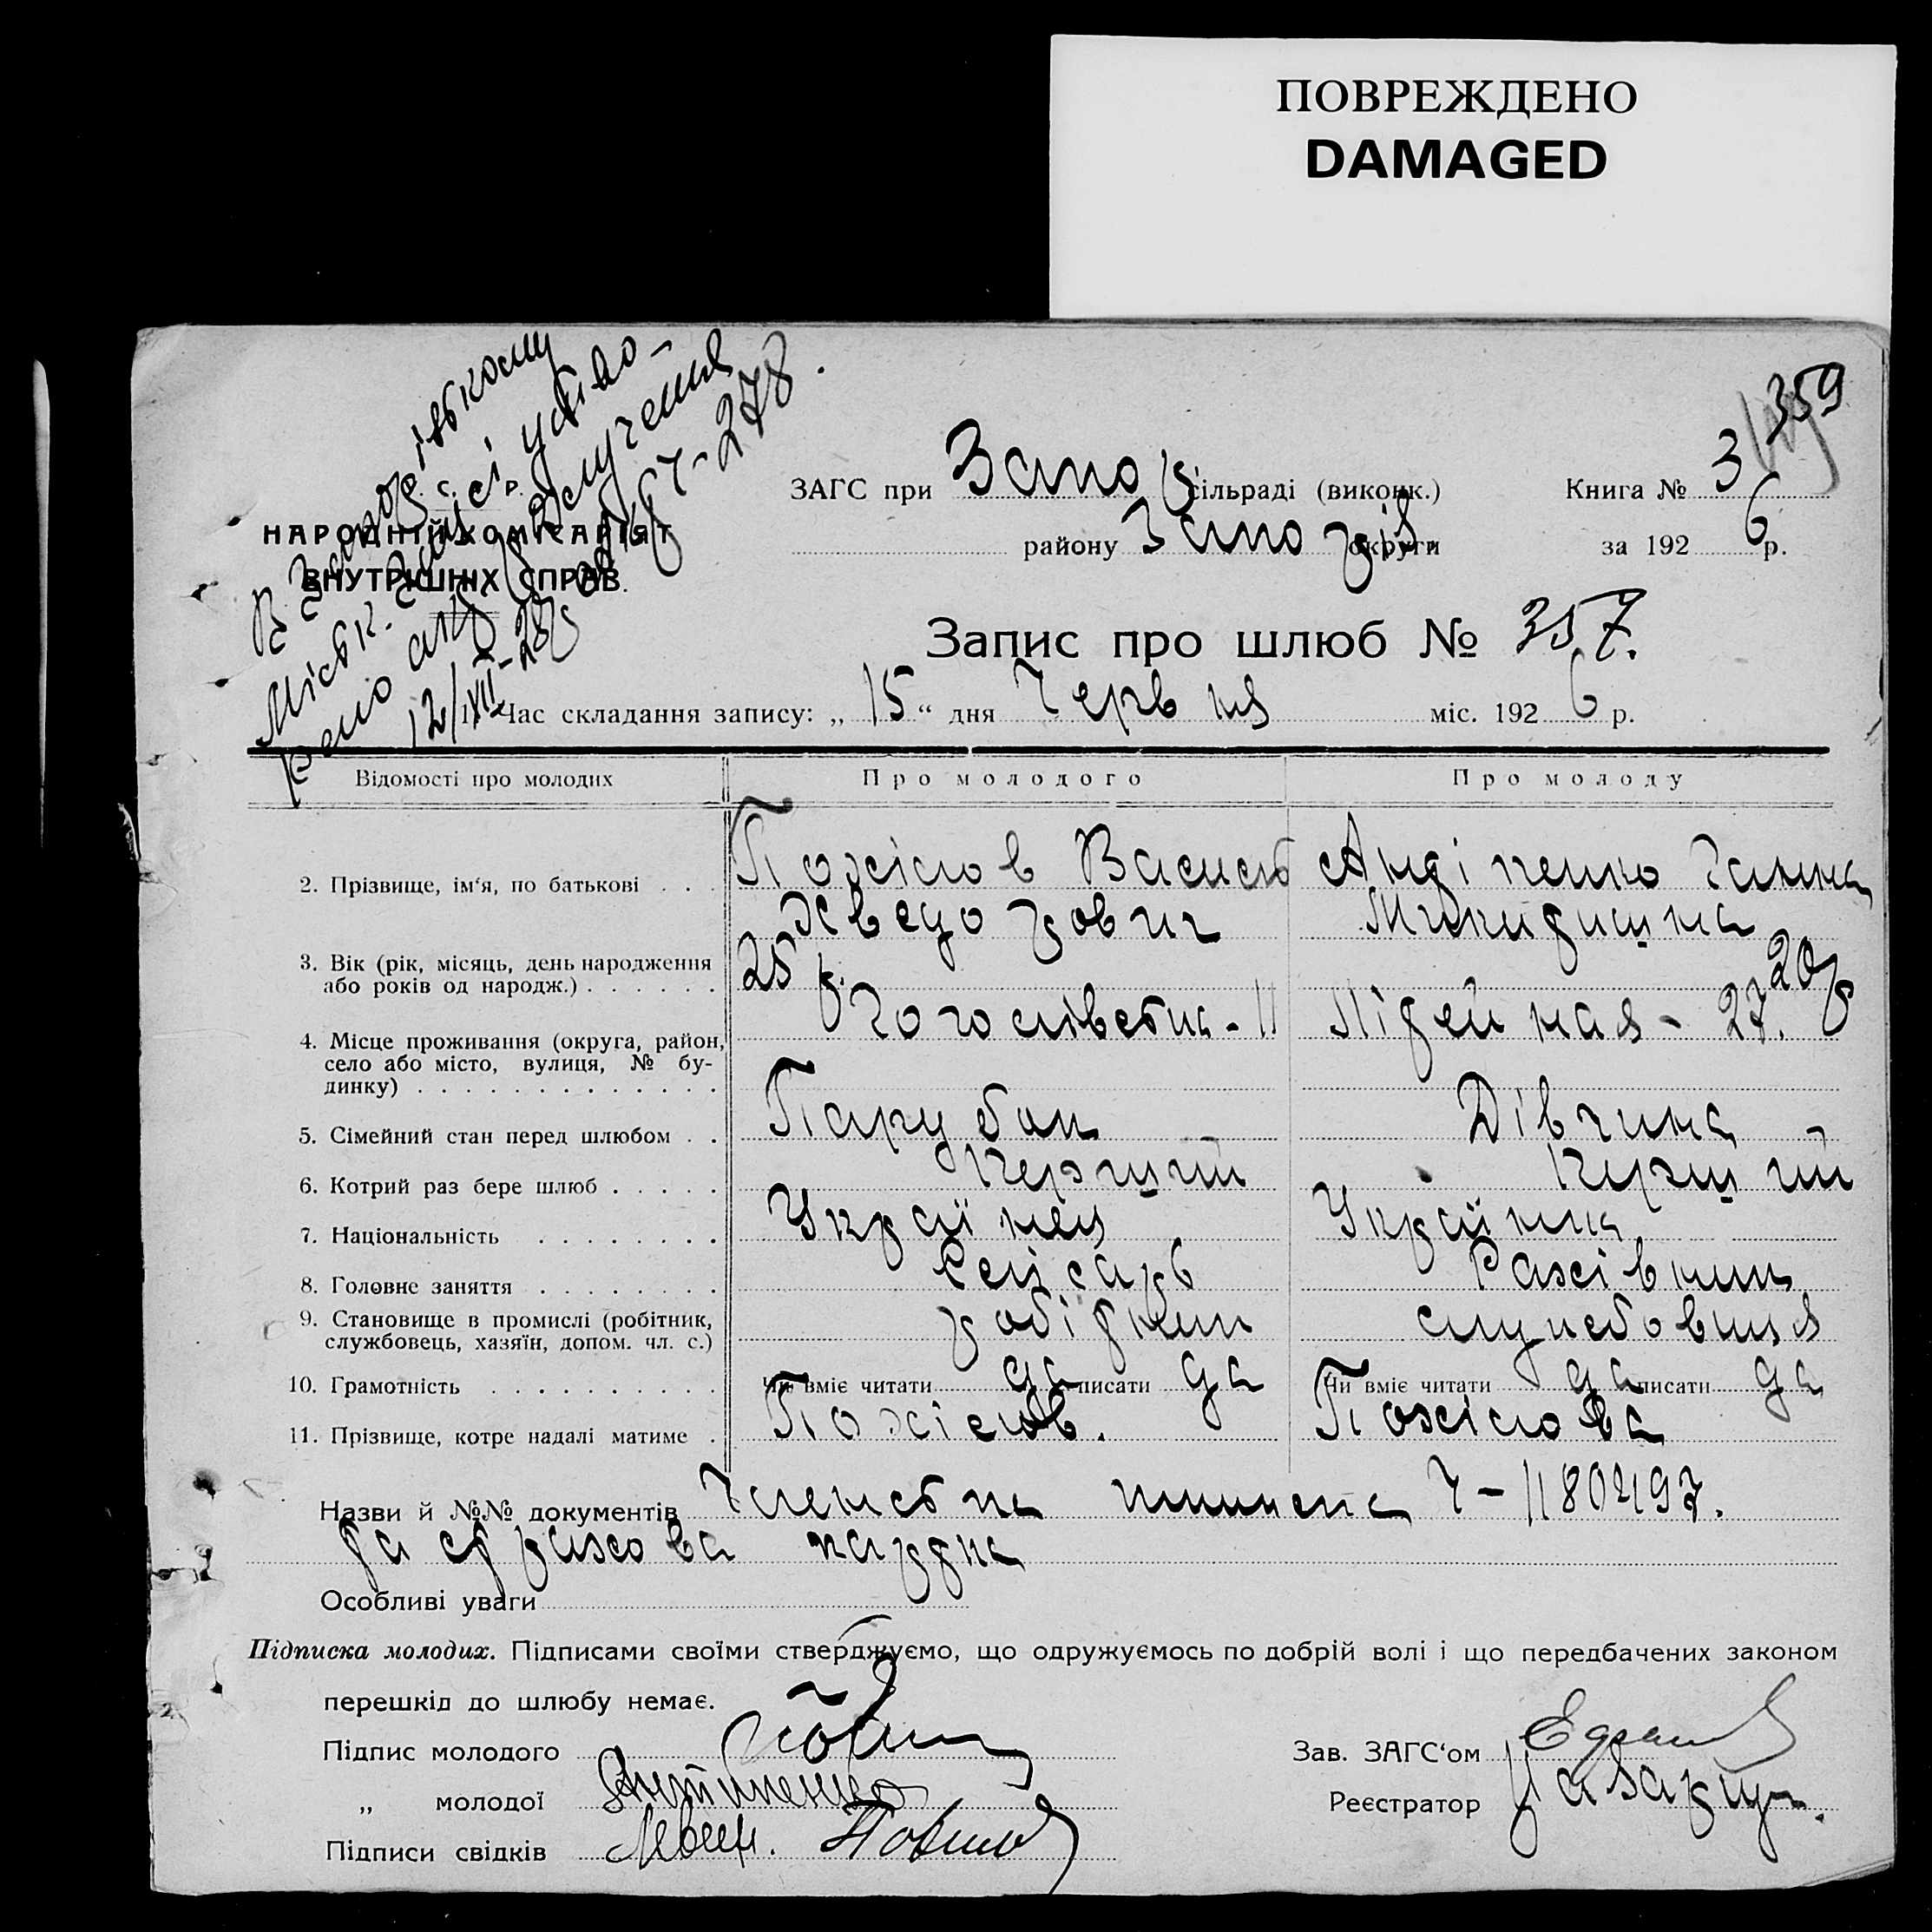 ПОВРЕЖДЕНО
DAMAGED
359
ЗАГС при Запо сільраді (виконк.) Книга № 3
району Запо різ. округи за 192 6 р.
У. С. Р. Р.
НАРОДНІЙ КОМІСАРІЯТ
ВНУТРІШНІХ СПРАВ.
В Запорізькому
Міськ. Загсі утво-
рено акт розлучення
12/XII-28р.
Запис про шлюб № 357.
1. Час складання запису: „ 15 “ дня Червня міс. 192 6 р.
Відомості про молодих Про молодого Про молоду
2. Прізвище, ім‘я, по батькові Василь Антіпенко Ганна
Хведорович Микитишна
3. Вік (рік, місяць, день народження 25 р. 20 р
або років од народж.)
4. Місце проживання (округа, район, Гоголівська - 11 Літейная - 27.
село або місто, вулиця, № бу-
динку)
5. Сімейний стан перед шлюбом Парубок Дівчина
6. Котрий раз бере шлюб Перший Перший
7. Національність Українець Українка
8. Головне заняття Слісарь Рахівник
9. Становище в промислі (робітник, робітник служебовиця
службовець, хазяїн, допом. чл. с.)
10. Грамотність Чи вміє читати да писати да Чи вміє читати да писати да
11. Прізвище, котре надалі матиме
Назви й №№ документів Членська книжка
та страхова картка
Особливі уваги
Підписка молодих. Підписами своїми стверджуємо, що одружуємось по добрій волі і що передбачених законом
перешкід до шлюбу немає.
Підпис молодого Зав. ЗАГС‘ом
„ молодої Антипенко Реєстратор
Підписи свідків